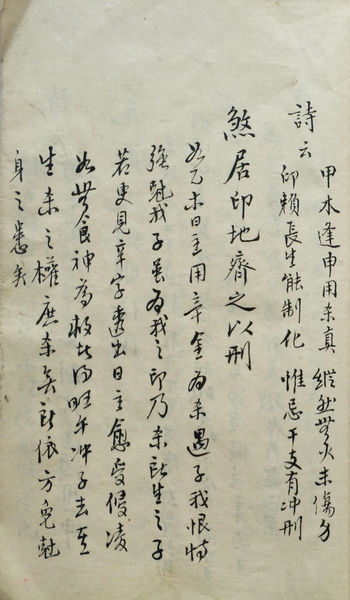 詩云
甲木逢申用杀真 縱然無火未傷身
印賴長生能制化 惟忌干支有冲刑
煞居印地齊之以刑
如乙木日主用辛金為杀遇子我恨
強尅我子虽為我之印乃杀所生之子
若更見辛字透出日主愈受侵凌
如無食神為救必得旺午冲子去其
生杀之權庶杀無所依方免尅
身之患矣